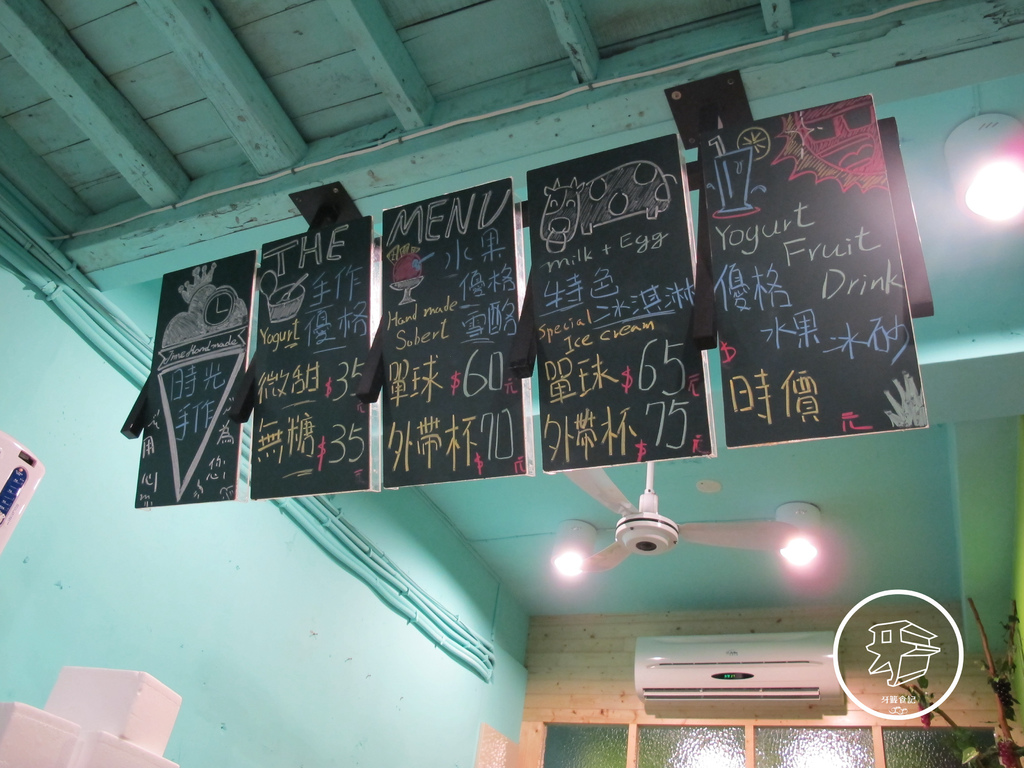 Time Handmade
時光
手作
用心
為您
THE
手作
Yogurt
優格
微甜 $35元
無糖 $35
MENU
水果
優格
Hand made
Sobert
雪酪
單球 $60元
外帶杯 $70元
milk + Egg
特色
冰淇淋
Special
Ice cream
單球 $65元
外帶杯 75元
Yogurt
Fruit
Drink
優格
水果 冰砂
$
時價
元